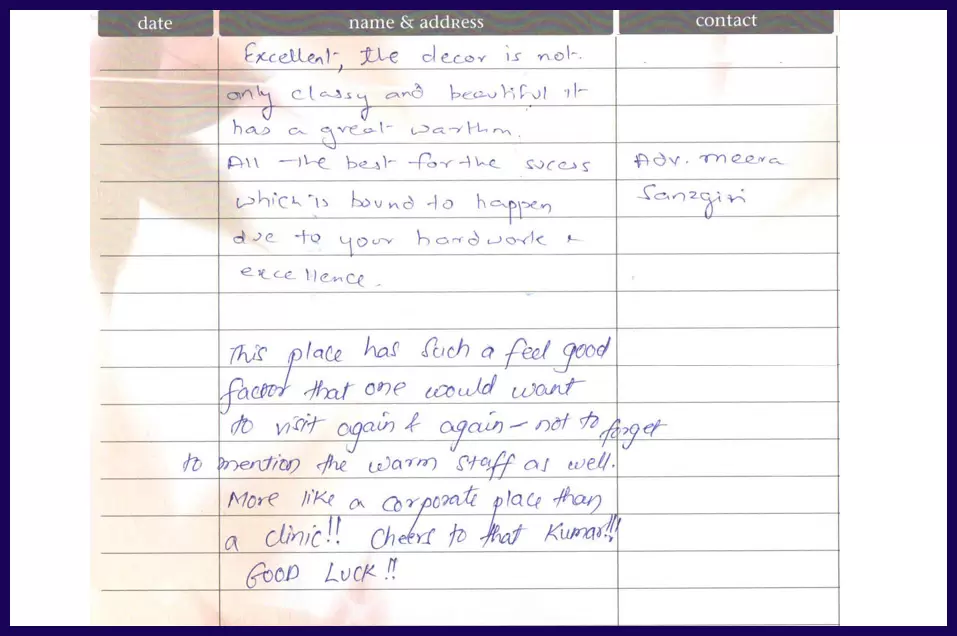 date name & address contact
Excellent, the decor is not
only classy and beautiful it
has a great warthm.
All the best for the sucess Adv. meera
which is bound to happen Sanzgiri
due to your hardwork &
excellence.
This place has such a feel good
factor that one would want
to visit again & again - not to forget
to mention the warm staff as well.
More like a corporate place than
a clinic!! Cheers to that Kumar!!!
GOOD LUCK!!